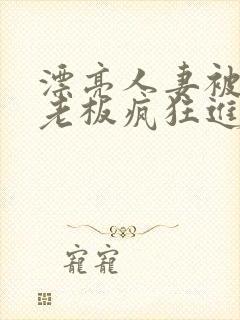 漂亮人妻被
老板疯狂进
宠宠